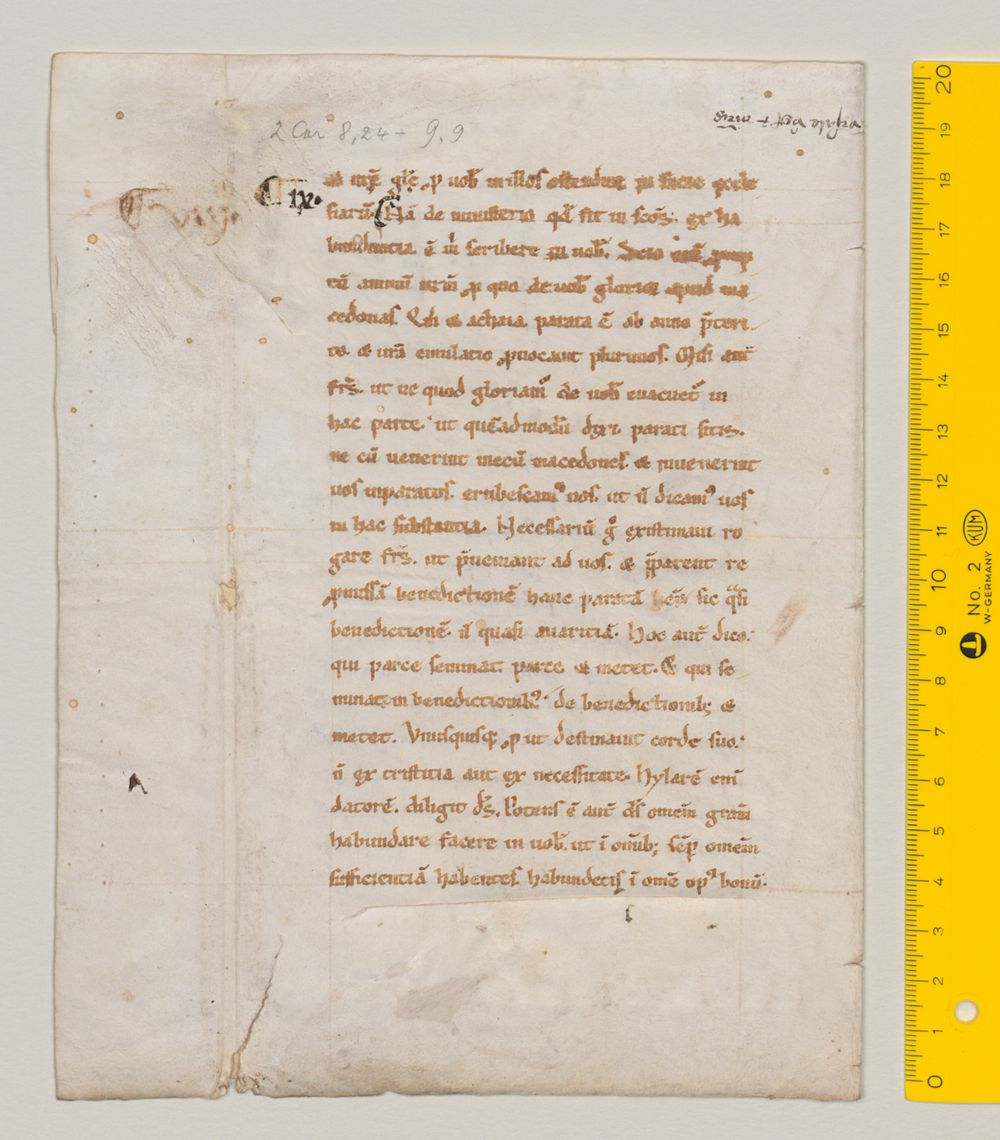 2 Cor 8,24 – 9,9
& nr̄e gl̄e ꝑ uob̄ in illos ostendite in facie eccle
siarū. Nā de ministerio qd̄ fit in sc̄os: ex ha
bundantia ē m̄ scribere uob̄. Scio
tū animū ur̄m ꝓ quo de uob̄ glorior apud ma
cedonas. Qm̄ & achaia parata ē ab anno p̄teri
to. & ur̄a emulatio ꝓuocauit plurimos. Misi aut̄
fr̄s. ut ne quod gloriamꝰ de uob̄ euacuet̄ in
hac parte. ut quēadmodū dixi parati sitis.
ne cū uenerint mecū macedones. & inuenerint
uos inparatos. erubescamꝰ nos. ut n̄ dicamꝰ uos
in hac substantia. Necessariū gͦ existimaui ro
gare fr̄s. ut p̄ueniant ad uos. & p̄parent re
ꝓmissā benedictionē hanc paratā sic qͣsi
benedictionē n̄ quasi auaritiā. Hoc aut̄ dico.
qui parce seminat. parce & metet. & qui se
minat in benedictionibꝰ. de benedictionib; &
metet. Vnusquisq; ꝓut destinauit corde suo.
n̄ ex tristitia aut ex necessitate. Hylarē eni
datorē. diligit d̄s. Potens ē aut̄ d̄s omem̄ grām
habundare facere in uob̄. ut ī omīb; sēp omem̄
sufficientiā habentes. habundetis ī omē opꝰ bonū.
20
19
18
17
16
15
14
13
12
11
10
9
8
7
6
5
4
3
2
1
0
KUM
No. 2
W-GERMANY